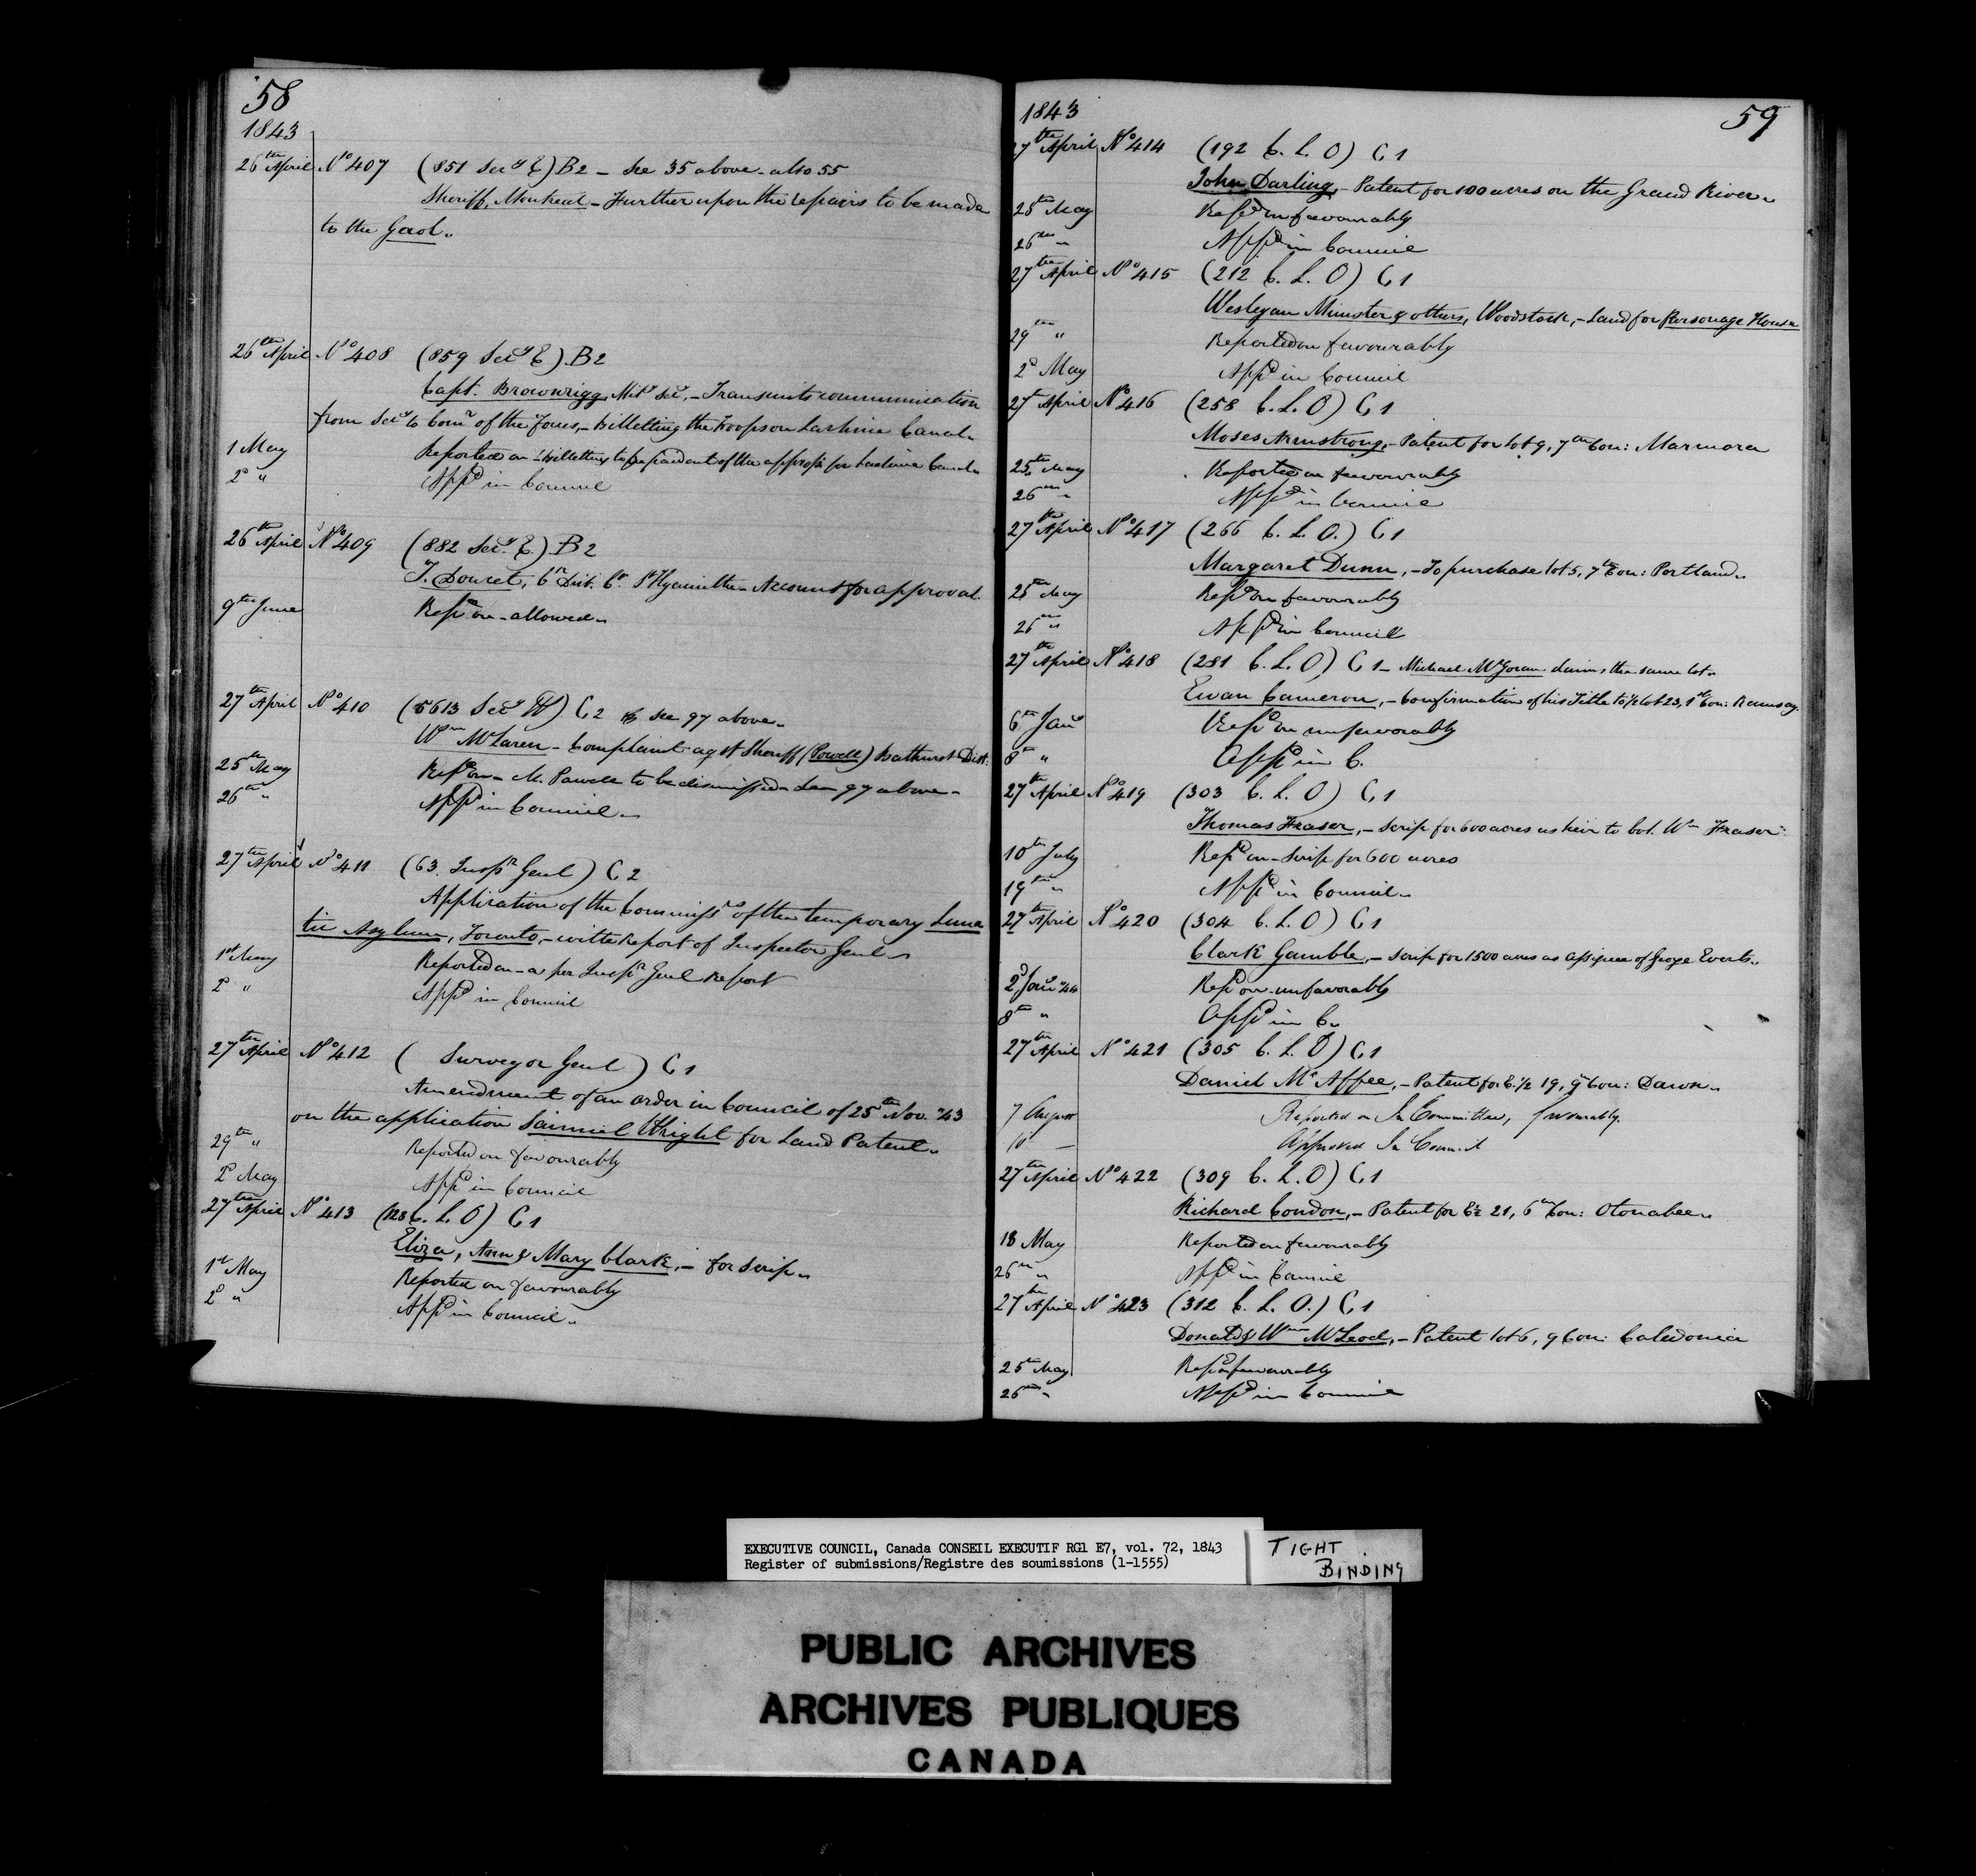 58
1843
26th April No 407 (851 Secy E) B2 - See 35 above - also 55
Sheriff, Montreal - Further upon the repairs to be made
to the Gaol.
26th April No 408 (859 Secy E) B2
Capt. Brownrigg, Mily Secy, - Transmits communication
from Secy to Comr of the Forces, - billetting the Troops on Lachine Canal.
1 May Reported on - billetting to be paid out of the appropn for Lachine Canal
2d " Appd in Council
26th April No 409 (882 Secy E.) B2
T. Doucet, Cn Dist. Ct. St Hyacinthe - Account for approval.
9th June Repd on - allowed.
27th April No 410 (5613 Secy W) C2 see 97 above.
Wm McLaren - Complaint agst Sheriff (Powell) Bathurst Dist:
25th May Repd on - M. Powell to be dismissed - See 97 above -
26th " Appd in Council.
27th April No 411 (63. Inspr Genl) C2
Application of the Commissrs of the temporary Luna
tic Asylum, Toronto, - with Report of Inspector Genl
1st May Reported on - as per Inspr Genl Report
2d " Appd in Council
27th April No 412 ( Surveyor Genl ) C1
Amendment of an order in Council of 25th Nov. 43
on the application Samuel Wright for Land Patent.
29th " Reported on favourably
2d May Appd in Council
27th April No 413 (128 C. L. O) C1
Eliza, Ann & Mary Clark, - for Scrip.
1st May Reported on favourably
2d " Appd in Council.
1843 59
27th April No 414 (192 C. L. O) C1
John Darling, - Patent for 100 acres on the Grand River.
25th May Repd on favourably
26th " Appd in Council
27th April No 415 (212 C. L. O) C1
Wesleyan Minister & others, Woodstock, - Land for Parsonage House
29th " Reported on favourably
2d May Appd in Council
27th April No 416 (258 C. L. O) C1
Moses Armstrong, - Patent for lot 9, 7th Con: Marmora
25th May Reported on favourably
26th " Appd in Council
27th April No 417 (266 C. L. O.) C1
Margaret Dunn, - To purchase lot 5, 7th Con: Portland.
25th May Repd on favourably
26th " Appd in Council
27th April No 418 (281 C. L. O) C1 - Michael McGoran claims the same lot.
Ewan Cameron, - Confirmation of his Title to ½ lot 23, 1st Con: Ramsay.
6th Jany Repd on unfavorably
8th " Appd in C.
27th April No 419 (303 C. L. O) C1
Thomas Fraser, - Scrip for 600 acres as heir to Col. Wm Fraser
10th July Repd on - Scrip for 600 acres
19th " Appd in Council.
27th April No 420 (304 C. L. O) C1
Clark Gamble, - Scrip for 1500 acres as Assignee of George Everts.
2d Jany 44 Repd on unfavorably
8th " Appd in C.
27th April No 421 (305 C. L. O) C1
Daniel McAffee, - Patent for E. ½ 19, 9 Con: Dawn.
7 August Reported on In Committee, favourably.
10 - Approved In Council
27th April No 422 (309 C. L. O) C1
Richard Condon, - Patent for E½ 21, 6th Con: Otonabee.
18 May Reported on favourably
26th " Appd in Council
27th April No 423 (312 C. L. O.) C1
Donald & Wm McLeod, - Patent lot 6, 9 Con: Caledonia
25th May Repd on favourably
26th " Appd in Council
EXECUTIVE COUNCIL, Canada CONSEIL EXECUTIF RG1 E7, vol. 72, 1843
Register of submissions/Registre des soumissions (1-1555)
TIGHT
BINDING
PUBLIC ARCHIVES
ARCHIVES PUBLIQUES
CANADA